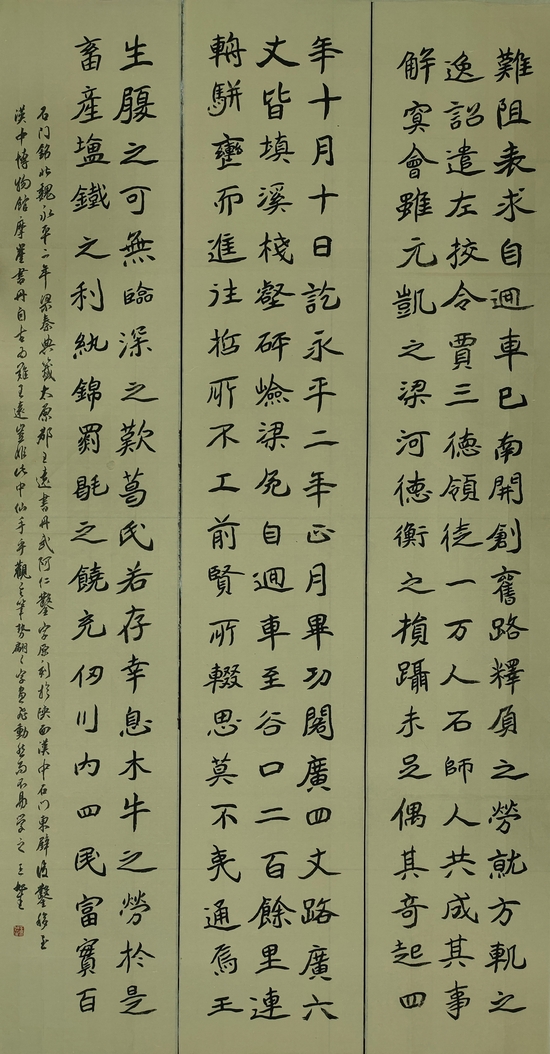 難阻表求自迴車已南開創舊路釋負之勞就方軌之
逸詔遣左挍令賈三德領徒一万人石師人共成其事
解㝠會雖元凱之梁河德衡之損躡未足偶其奇起四
年十月十日訖永平二年正月畢功閣廣四丈路廣六
丈皆填溪棧壑砰嶮梁危自迴車至谷口二百餘里連
輈駢轡而進往哲所不工前賢所輟思莫不夷通焉王
生履之可無臨深之歎葛氏若存幸息木牛之勞於是
畜產塩鐵之利紈錦罽毼之饒充仞川内四民富實百
石门銘北魏永平二年梁秦典籖太原郡王遠書丹武阿仁鑿字原刻於陝西漢中石门東壁後鑿移至
漢中博物館摩崖書丹自古為難王遠豈非此中仙手乎觀之筆勢翩々字画飛動然而不易学之